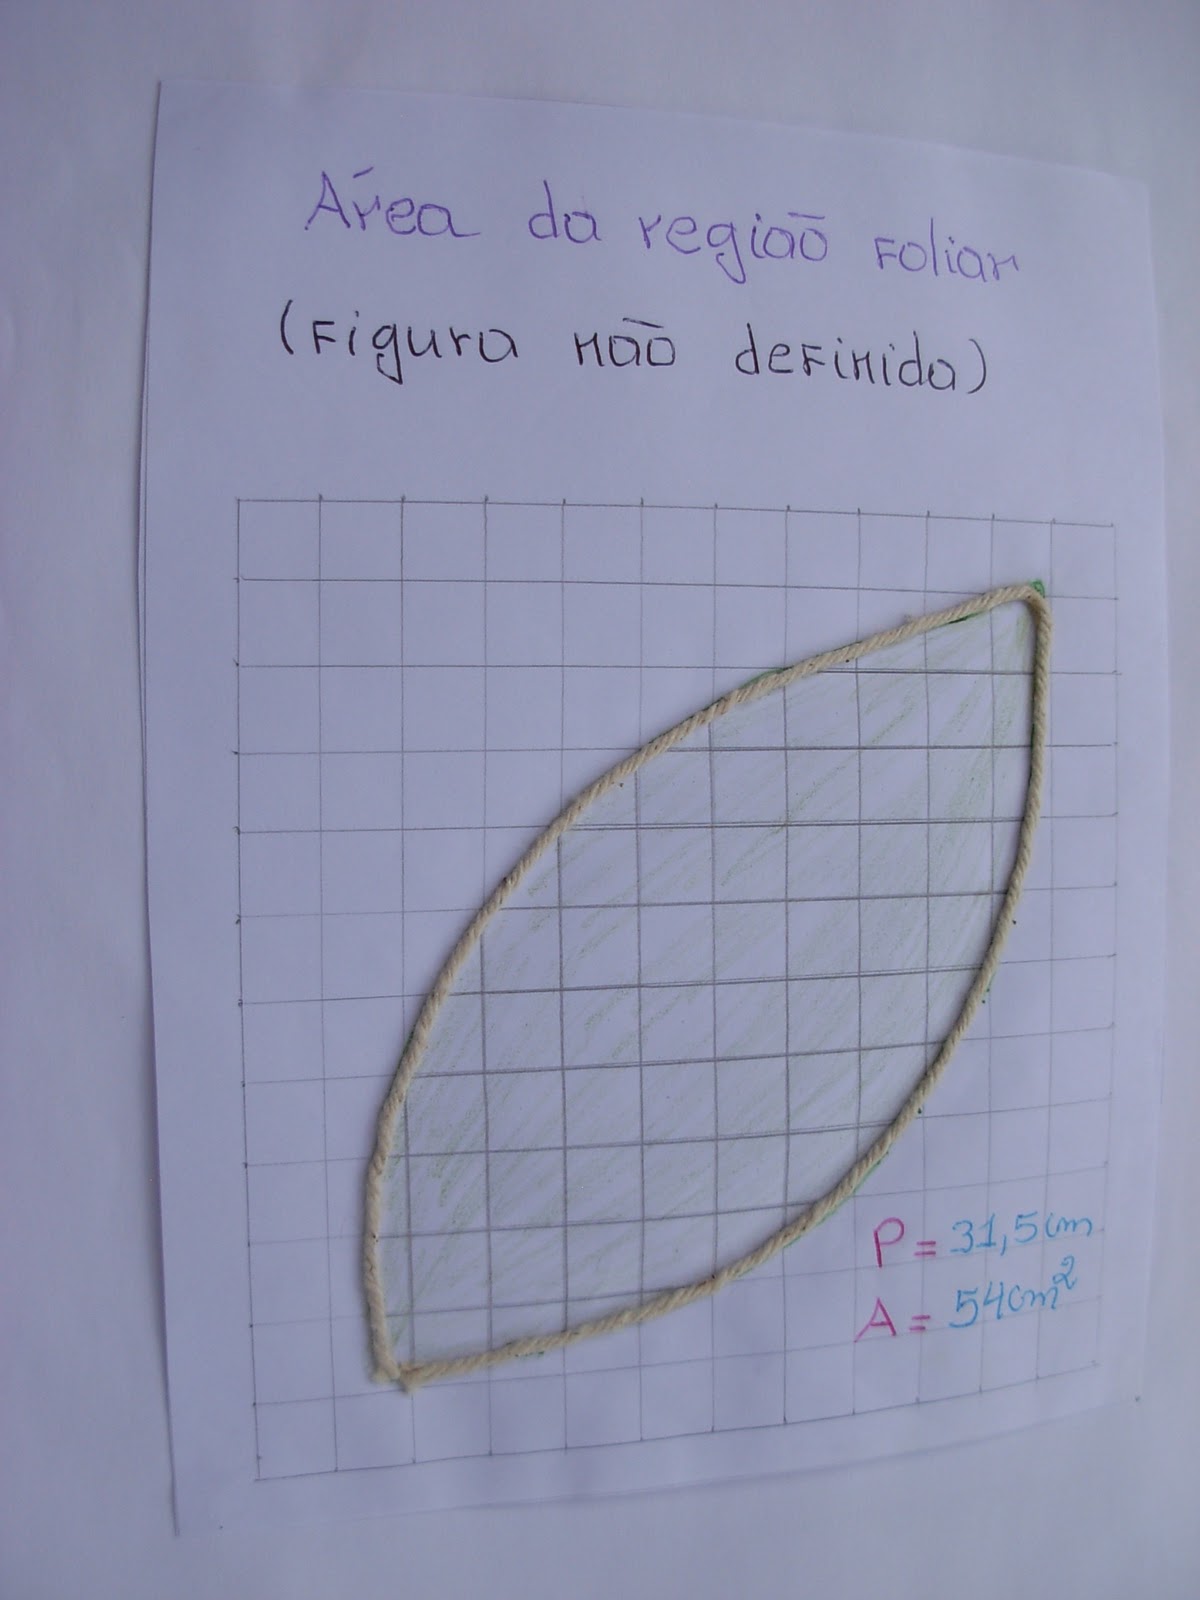 Área da região foliar
(Figura não definida)
P = 31,5cm
A = 54cm²